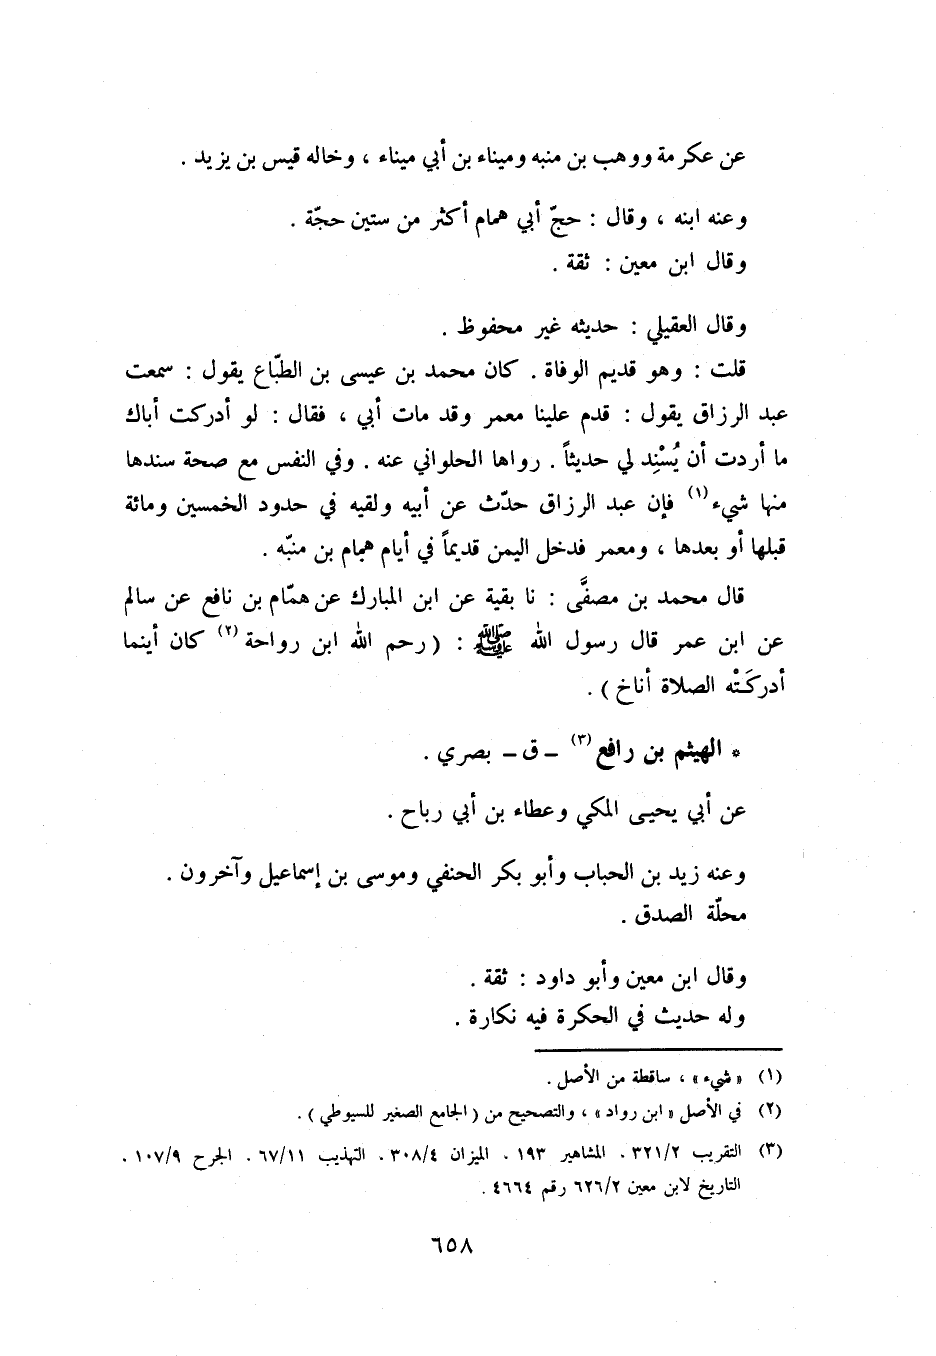 عن عكرمة ووهب بن منبه وميناء بن أبي ميناء ، وخاله قيس بن يزيد .
وعنه ابنه ، وقال : حجّ أبي همام أكثر من ستين حجّة .
وقال ابن معين : ثقة .
وقال العقيلي : حديثه غير محفوظ .
قلت : وهو قديم الوفاة . كان محمد بن عيسى بن الطبّاع يقول : سمعت
عبد الرزاق يقول : قدم علينا معمر وقد مات أبي ، فقال : لو أدركت أباك
ما أردت أن يُسْنِد لي حديثاً . رواها الحلواني عنه . وفي النفس مع صحة سندها
منها شيء (١) فإن عبد الرزاق حدّث عن أبيه ولقيه في حدود الخمسين ومائة
قبلها أو بعدها ، ومعمر فدخل اليمن قديماً في أيام همام بن منبّه .
قال محمد بن مصفَّى : نا بقية عن ابن المبارك عن همّام بن نافع عن سالم
عن ابن عمر قال رسول الله ﷺ : ( رحم الله ابن رواحة (٢) كان أينما
أدركَتْه الصلاة أناخ ) .
* الهيثم بن رافع (٣) ـ ق ـ بصري .
عن أبي يحيى المكي وعطاء بن أبي رباح .
وعنه زيد بن الحباب وأبو بكر الحنفي وموسى بن إسماعيل وآخرون .
محلّة الصدق .
وقال ابن معين وأبو داود : ثقة .
وله حديث في الحكرة فيه نكارة .
(١) « شيء » ، ساقطة من الأصل .
(٢) في الأصل « ابن رواد » ، والتصحيح من ( الجامع الصغير للسيوطي ) .
(٣) التقريب ٣٢١/٢ . المشاهير ١٩٣ . الميزان ٣٠٨/٤ . التهذيب ٦٧/١١ . الجرح ١٠٧/٩ .
التاريخ لابن معين ٦٢٦/٢ رقم ٤٦٦٤ .
٦٥٨